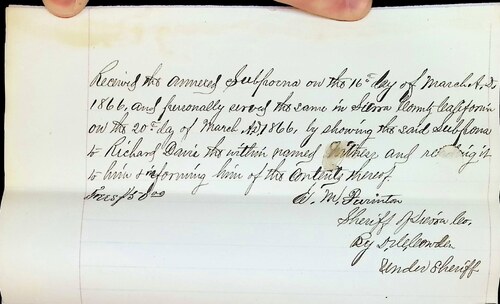 Received the annexed Subpoena on the 16th day of March A.D.
1866, and personally served the same in Sierra County California
on the 20th day of March AD 1866, by showing the said Subpoena
to Richard Davie the within named Witness and reading it
to him & informing him of the Contents thereof.
Fees $5.00
Sheriff of Sierra Co.
By
Under Sheriff